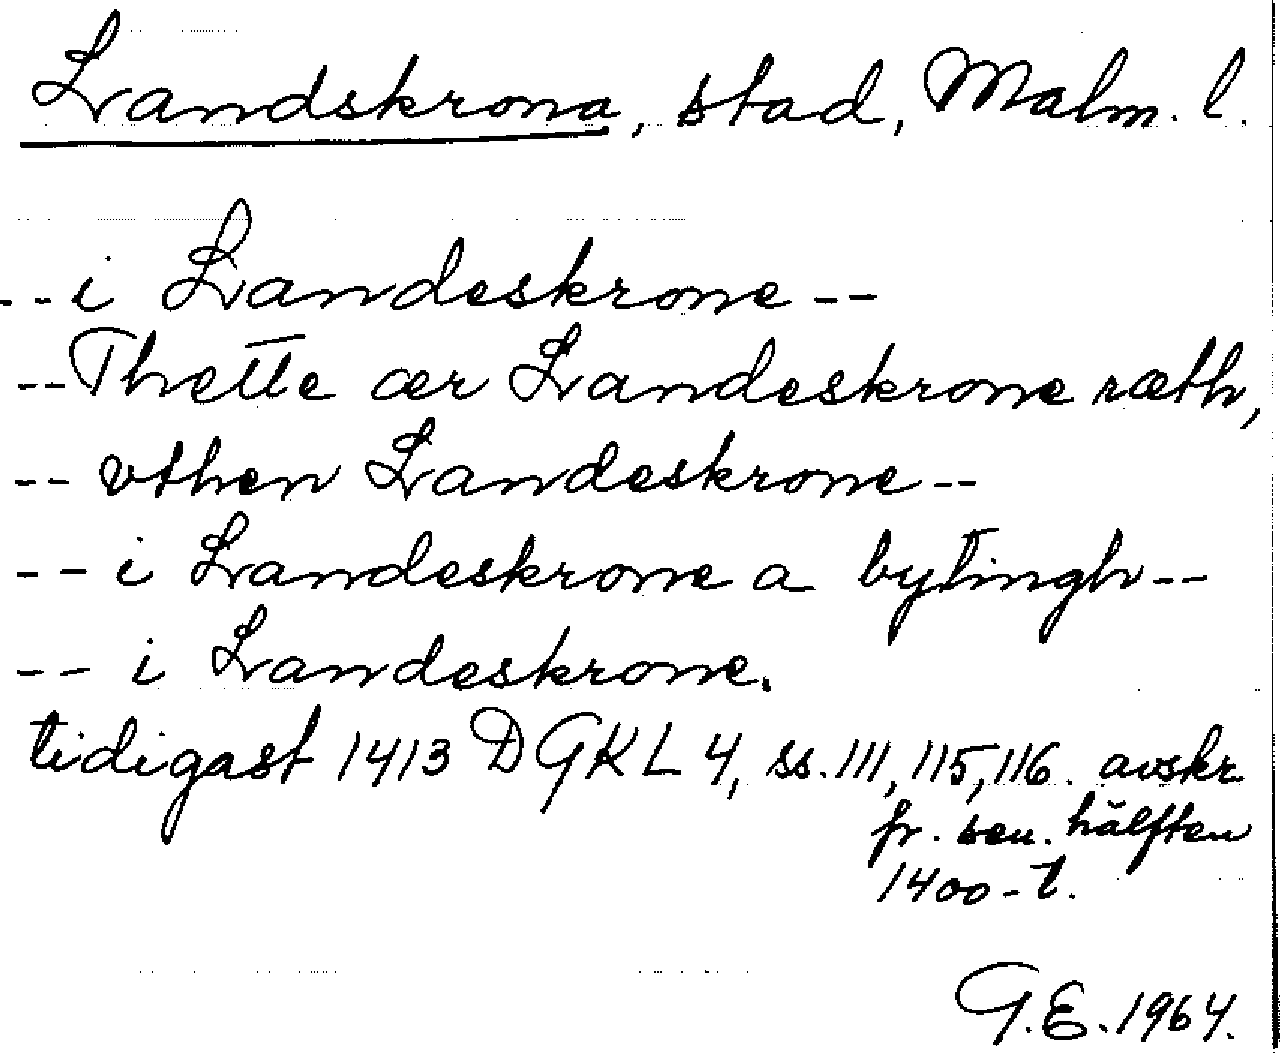 Landskrona, stad, Malm. l.
-- i Landeskrone --
-- Thette ær Landeskrone ræth,
-- vthen Landeskrone --
-- i Landeskrone a bytingh --
-- i Landeskrone.
tidigast 1413 DGKL 4, ss. 111, 115, 116. avskr.
fr. sen. hälften
1400-t.
G.E. 1964.